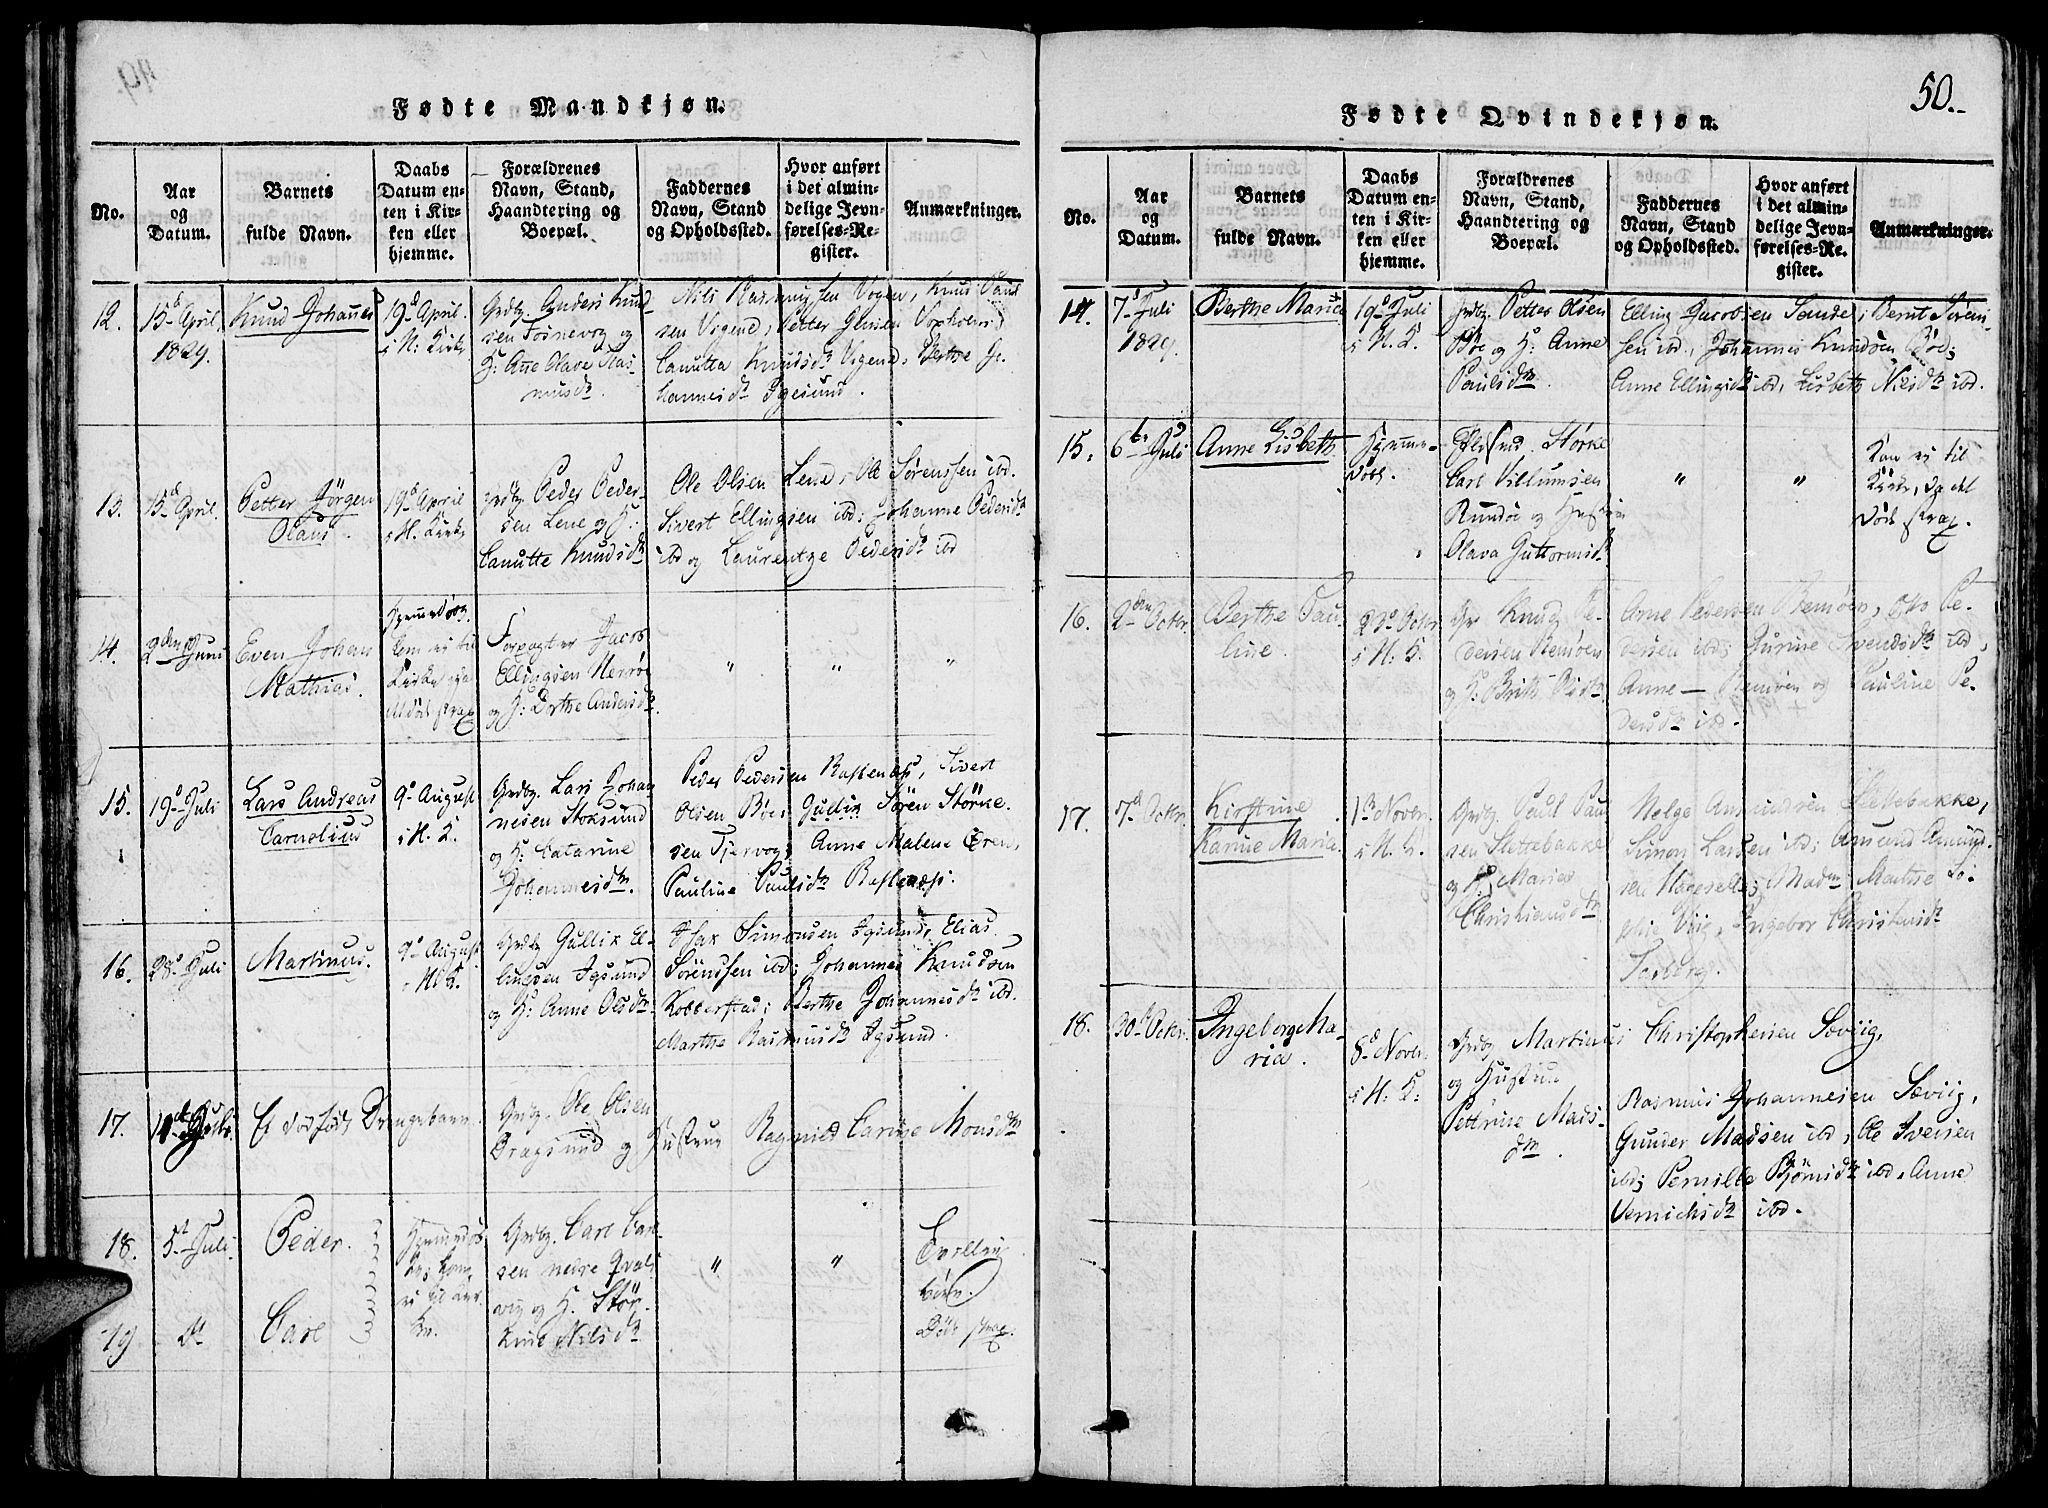 50.
Fødte Mandkjøn.
No.
Aar
og
Datum.
Barnets
fulde Navn.
Daabs
Datum en-
ten i Kir-
ken eller
hjemme.
Forældrenes
Navn, Stand,
Haandtering og
Boepæl.
Faddernes
Navn, Stand
og Opholdssted.
Hvor anført
i det almin-
delige Jevn-
førelses-Re-
gister.
Anmærkninger.
12.
15d April
1829.
Knud Johannes
19d April
i H: Kirke
Grdbr. Anders Knud-
sen Tosnevog og
H: Ane Olave Ras-
musdtr.
Nils Rasmussen Vogen, Knud Paul-
sen Vigene, Petter
Canutta Knudsdtr Vigene, Berthe Jo-
hannesdtr Igesund.
13.
15d April.
Petter Jørgen
Olaus.
19d April
i H. Kirke
Grdbr. Peder Peder-
sen Lene og H:
Canutte Knudsdtr
Ole Olsen Lene, Ole Sørenssen ibd.
Sivert Ellingsen ibd; Johanne Pedersdtr
ibd og Laurentze Pedersdtr ibd
14.
2den Juni
Even Johan
Mathias.
Kom ei til
Kirke
død strax
Forpagter Jacob
Ellingsen Herrøe
og H: Dorthe Andersdtr.
" " "
15.
19d Juli
Lars Andreas
Carnelius
9d August
i H. K.
Grdbr. Lars Johan-
nesen Stoksund
og H: Catarine
Johannesdtr.
Peder Pedersen Raftenæs, Sivert
Olsen Bøe; Gullik Søren Størke-
sen Tjervog; Anne Malene Øren,
Pauline Paulsdtr Raftenæs.
16.
28d Juli
Martinus.
9d August
i H. K.
Grdbr Gullik El-
lingsen Igsund
og H: Anne Olsdtr
Isak Simonsen Igsund, Elias
Sørenssen ibd; Johannes Knudsen
Kobberstad; Berthe Johannesdtr ibd.
Marthe Rasmusdtr Igsund.
17.
Et dødfødt Drengebarn.
Grdbr. Ole Olsen
Dragsund og Hustrue Ragnild Carine Monsdtr
18.
5t Juli
Peder.
Hjemmedøbt
kom
ei til Kir-
ken
Grdbr. Carl Carl-
sen nedre Qvals-
vig og H. Stør-
kine Nilsdtr
" "
Tvilling
børn.
Døde strax.
19
Dt
Carl
Fødte Qvindekjøn.
No.
Aar
og
Datum.
Barnets
fulde Navn.
Daabs
Datum en-
ten i Kir-
ken eller
hjemme.
Forældrenes
Navn, Stand,
Haandtering og
Boepæl.
Faddernes
Navn, Stand
og Opholdssted.
Hvor anført
i det almin-
delige Jevn-
førelses-Re-
gister.
Anmærkninger.
14.
7d Juli
1829.
Berthe Marie
19d Juli
i H. K.
Grdbr. Petter Olsen
Bøe og H: Anne
Paulsdtr.
Elling Jacobsen Sande; Bernt Søren-
sen ibd., Johannes Knudsen Bøe;
Anne Ellingsdtr ibd, Lisbeth Nilsdtr ibd.
15.
6te Juli
Anne Lisbeth
Hjemme-
døbt.
Størke
Carl Villumsen
Rundøe og Hustrue
Olava Guttormsdtr
" "
Kom ei til
Kirke, da det
døde strax.
16.
2den Octbr.
Berthe Pau-
line.
23d Octbr
i H: K.
Gr Knud Pe-
dersen Remøen
og H: Brithe Olsdtr.
Arne Pedersen Remøen, Otto Pe-
dersen ibd; Gurine Svendsdtr ibd,
Anne — Remøen og Pauline Pe-
dersdtr ibd.
17.
7d Octbr.
Kirstine
Karine Marie.
1ste Novbr.
i H. K.
Grdbr. Paul Paul-
sen Slettebakke
og H: Maria
Christiansdtr
Helge Amundsen Slettebakke,
Simon Larsen ibd; Amund Amund-
sen Hageselle; Madm: Marthe So-
phie Viig, Ingebor Christensdtr
Torberg.
18.
30d Octbr.
Ingeborg Ma-
ria.
8d Novbr.
i H: K:
Grdbr. Martinus Christophersen Sæviig,
og Hustrue
Pettrine Mads-
dtr.
Rasmus Johannesen Sæviig,
Gunder Madsen ibd, Ole Iversen
ibd; Pernille Bjørnsdtr ibd, Anne
ibd.